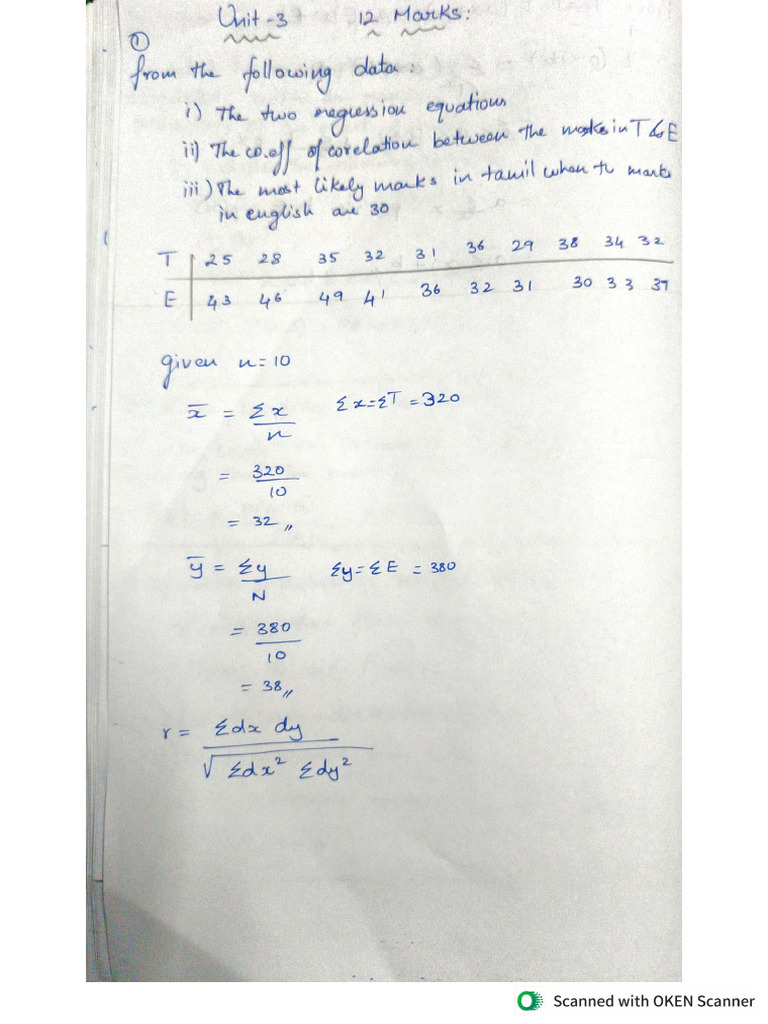 Unit-3 12 Marks:
①
from the following data:
i) The two regression equations
ii) The co.eff of corelation between the marks in T & E
iii) The most likely marks in tamil when the marks
in english are 30
T 25 28 35 32 31 36 29 38 34 32
E 43 46 49 41 36 32 31 30 33 39
given n=10
x̄ = Σx/n Σx=ΣT=320
= 320/10
= 32,,
ȳ = Σy/N Σy=ΣE = 380
= 380/10
= 38,,
r = Σdx dy / √Σdx² Σdy²
Scanned with OKEN Scanner